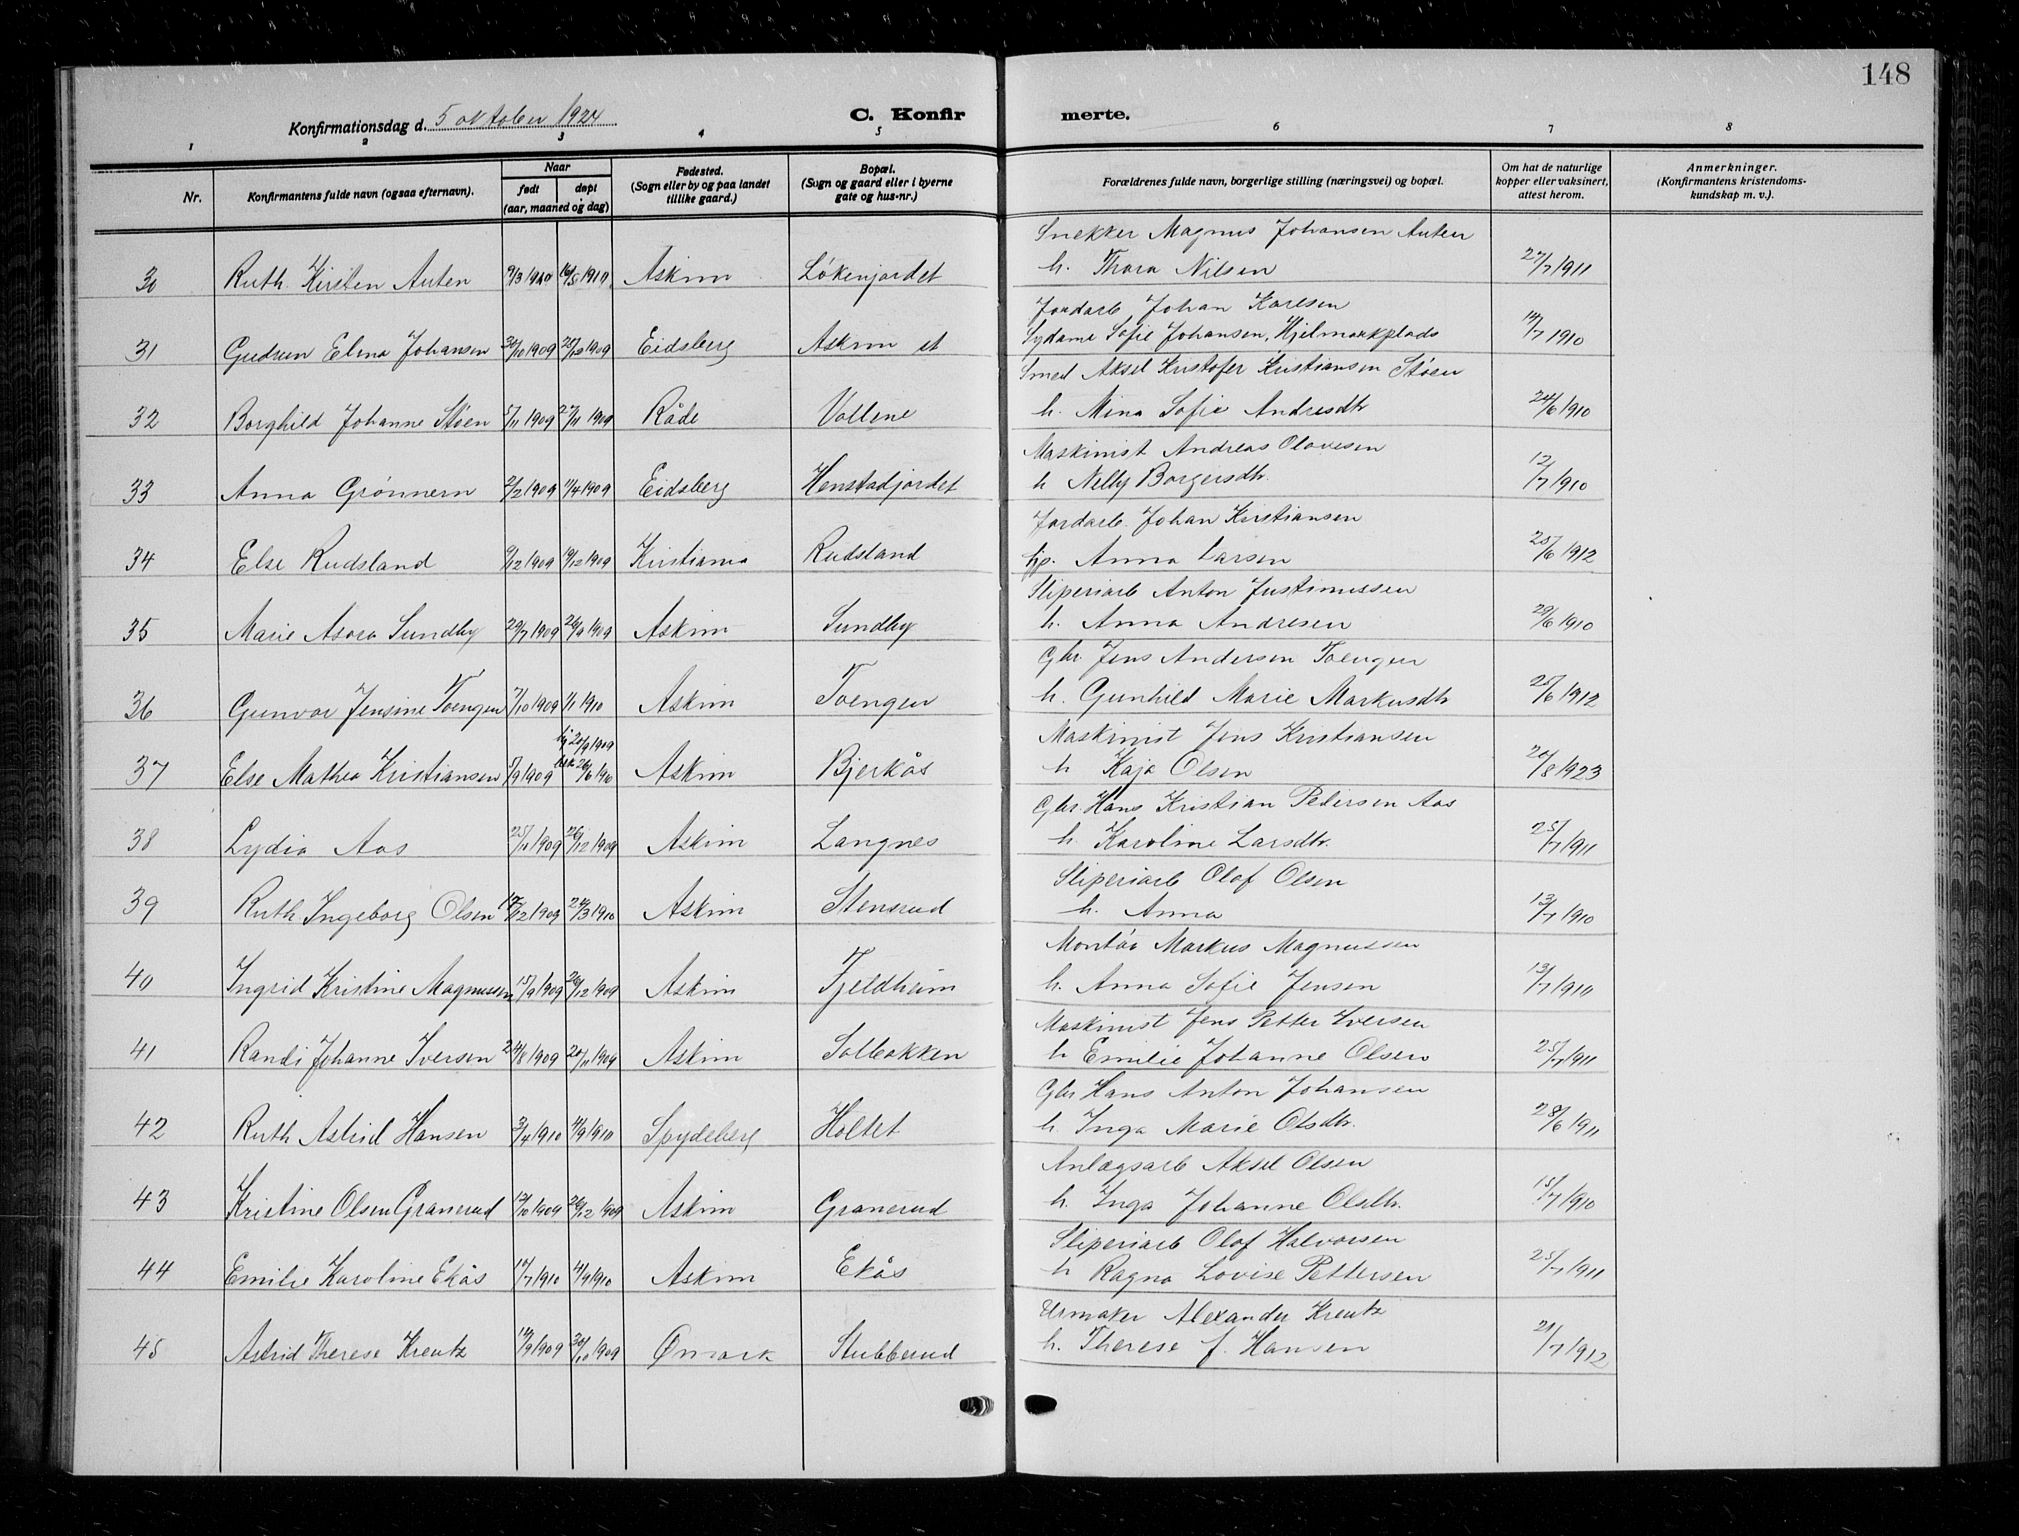 148
Konfirmationsdag d. 5 oktober 1924
C. Konfir merte.
1 2 3 4 5 6 7 8
Nr.
Konfirmantens fulde navn (ogsaa efternavn).
Naar
født
døpt
(aar, maaned og dag)
Fødested.
(Sogn eller by og paa landet
tillike gaard.)
Bopæl.
(Sogn og gaard eller i byerne
gate og hus-nr.)
Forældrenes fulde navn, borgerlige stilling (næringsvei) og bopæl.
Om hat de naturlige
kopper eller vaksinert,
attest herom.
Anmerkninger.
(Konfirmantens kristendoms-
kundskap m. v.).
Snekker Magnus Johansen Auten
30 Ruth Kirsten Auten 9/3 1910 16/5 1910 Askim Løkenjordet h. Thora Nilsen 27/7 1911
Jordarb Johan Karlsen
31 Gudrun Elena Johansen 30/10 1909 25/12 1909 Eidsberg Askim st Sydame Sofie Johansen, Hjelmarkplads 14/7 1910
Smed Aksel Kristofer Kristiansen Støen
32 Borghild Johanne Støen 5/11 1909 27/11 1909 Råde Vollene h. Mina Sofie Andresdtr 24/6 1910
Maskinist Andreas Olavesen
33 Anna Grønnern 2/2 1909 11/4 1909 Eidsberg Henstadjordet h Nelly Borgersdtr. 12/7 1910
Jordarb. Johan Kristiansen
34 Else Rudsland 9/12 1909 19/12 1909 Kristiania Rudsland Anna Larsen 25/6 1912
Sliperiarb Anton Justinussen
35 Marie Asora Sundby 29/7 1909 26/9 1909 Askim Sundby h. Anna Andresen 29/6 1910
Gbr. Jens Andersen Toengen
36 Gunvor Jensine Toengen 7/10 1909 1/1 1910 Askim Toengen h. Gunhild Marie Markusdtr 25/6 1912
hj 20/9 1909 Maskinist Jens Kristiansen
37 Else Mathea Kristiansen 5/9 1909 bek 26/6 1910 Askim Bjerkås h Kaja Olsen 20/8 1923
Gbr. Hans Kristian Pedersen Aas
38 Lydia Aas 25/11 1909 26/12 1909 Askim Langnes h. Karoline Larsdtr. 25/7 1911
Sliperiarb Olaf Olsen
39 Ruth Ingeborg Olsen 17/12 1909 24/3 1910 Askim Stensrud h. Anna 13/7 1910
Montør Markus Magnussen
40 Ingrid Kristine Magnussen 15/9 1909 26/12 1909 Askim Fjeldheim h. Anna Sofie Jensen 13/7 1910
Maskinist Jens Petter Iversen
41 Randi Johanne Iversen 24/8 1909 20/11 1909 Askim Solbakken h Emilie Johanne Olsen 25/7 1911
Gbr Hans Anton Johansen
42 Ruth Astrid Hansen 3/4 1910 11/9 1910 Spydeberg Holtet h. Inga Marie Olsdtr. 28/6 1911
Anlægsarb Aksel Olsen
43 Kristine Olsen Granerud 12/10 1909 26/12 1909 Askim Granerud h. Inga Johanne Olsdtr. 15/7 1910
Sliperiarb Olaf Halvorsen
44 Emilie Karoline Ekås 14/7 1910 11/9 1910 Askim Ekås h Ragna Lovise Pettersen 25/7 1911
Urmaker Alexander Kreutz
45 Astrid Therese Kreutz 14/9 1909 30/10 1909 Ømark Stubberud h. Therese f. Hansen 21/7 1912